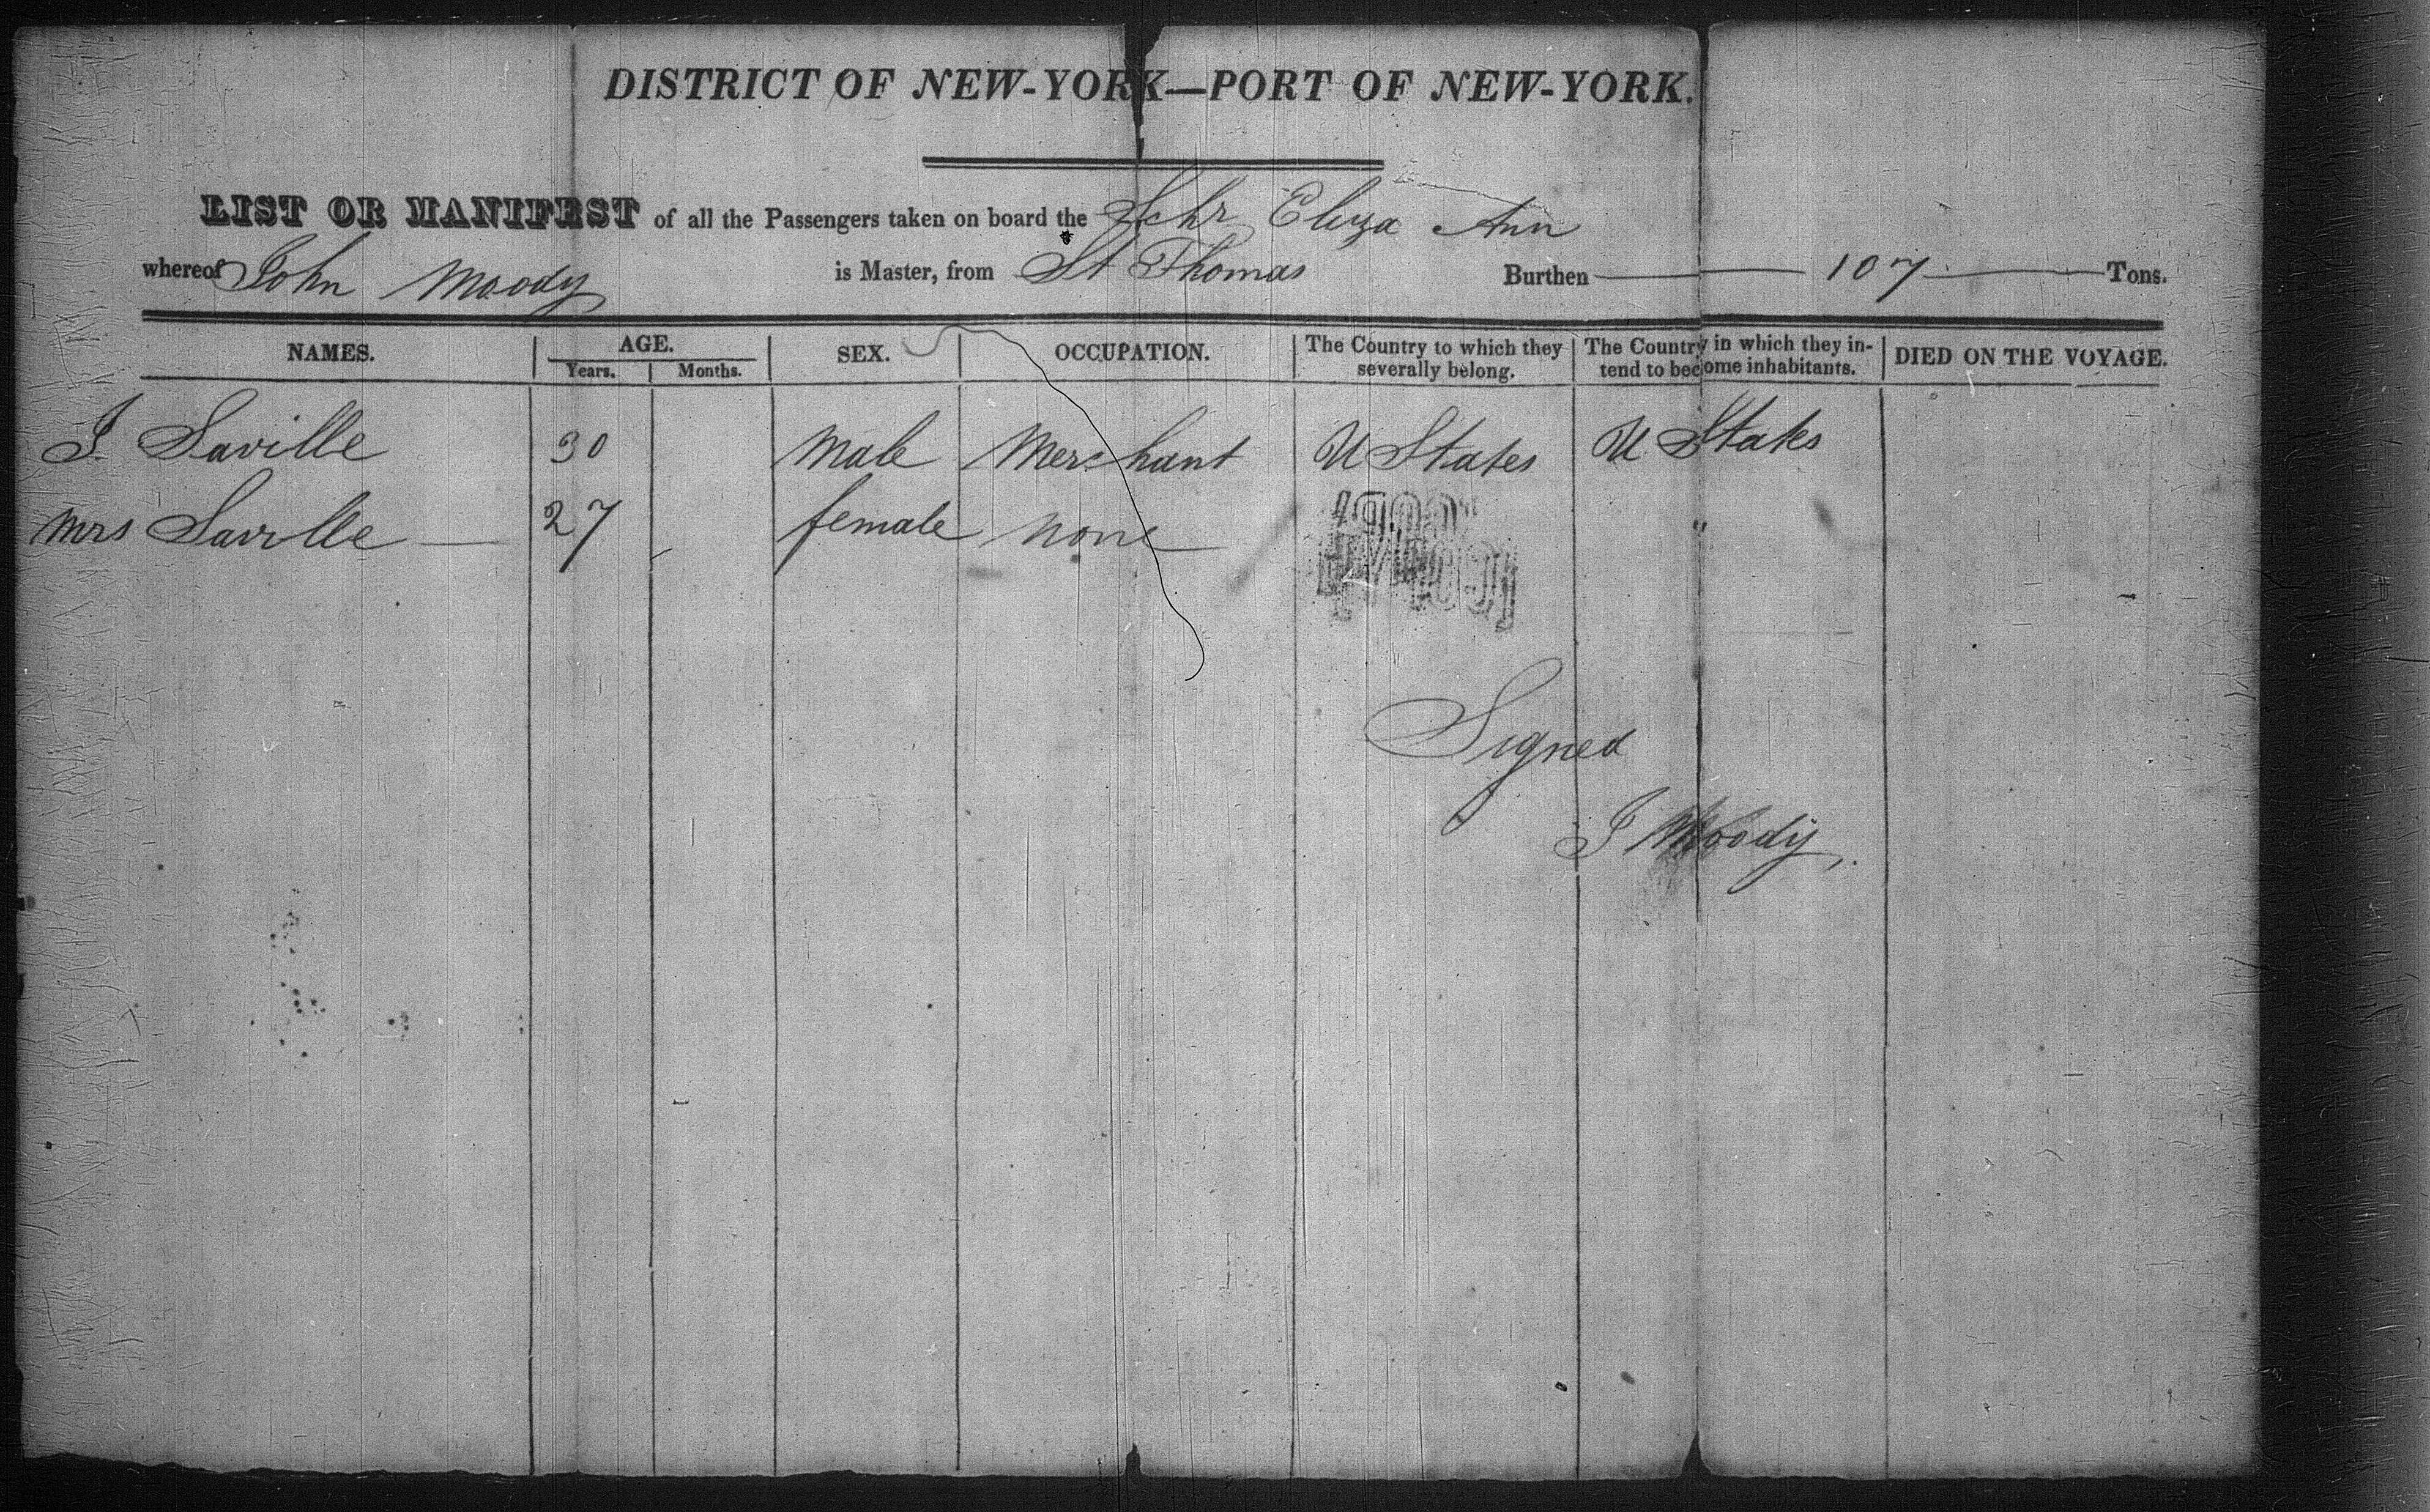 DISTRICT OF NEW-YORK—PORT OF NEW-YORK.
LIST OR MANIFEST of all the Passengers taken on board the Schr Eliza Ann
whereof John Moody is Master, from St Thomas Burthen 107 Tons.
NAMES. AGE. SEX. OCCUPATION. The Country to which they severally belong. The Country in which they intend to become inhabitants. DIED ON THE VOYAGE.
Years. Months.
J. Saville 30 Male Merchant U States U States
Mrs Saville 27 female none "
Signed
J Moody